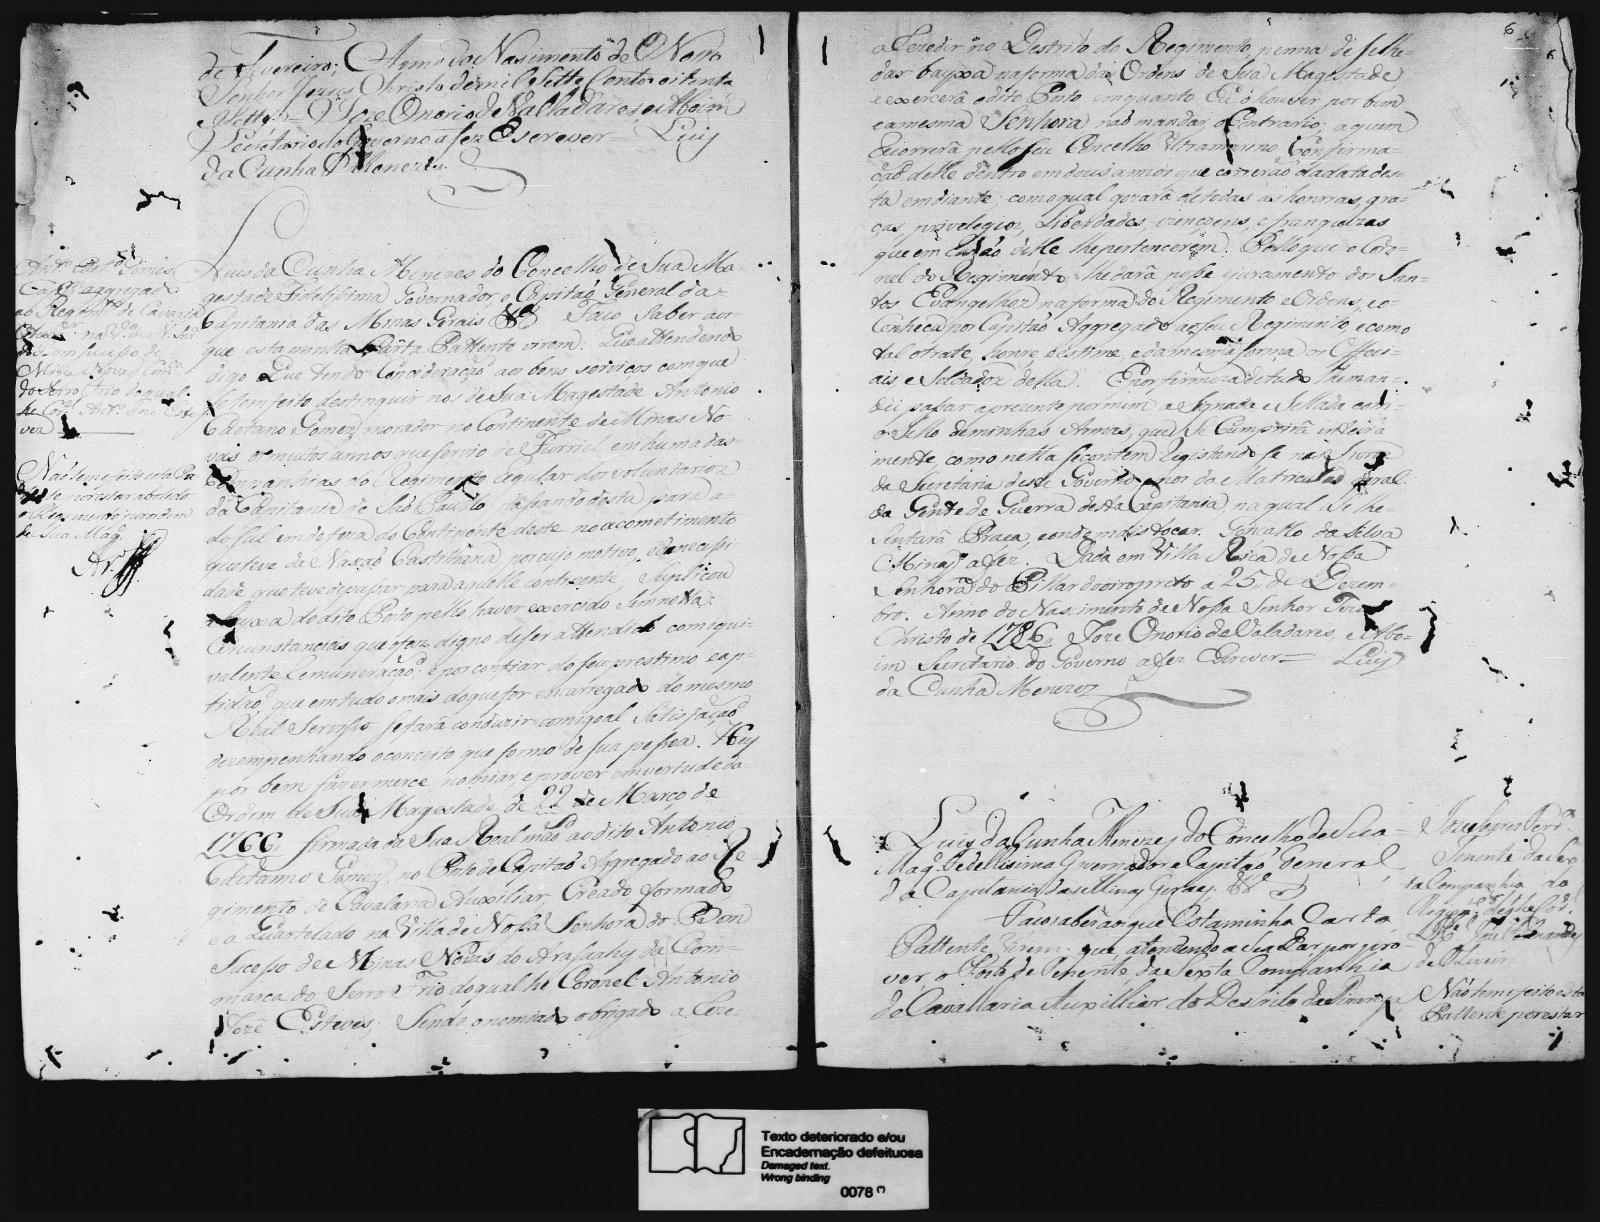 de Fevereiro; Anno do Nasimento de Nosso
Senhor Jezus Christo de mil e Sette Centos oitenta
e Sette = Joze Onorio de Valladares e Aboim
Secretario do Governo a fez Escrever = Luiz
da Cunha Menezes

Luis da Cunha Menezes do Concelho de Sua Ma-
gestade Fidelissima Governador e Capitaõ General da
Capitania das Minas Gerais &ª Faço Saber aos
que esta minha Carta Pattente virem: Que attendendo
digo Que tendo Concideraçaõ aos bons serviços com que
se tem feito destinguir nos de Sua Magestade Antonio
Caetano Gomez, morador no Continente de Minas No
vas os muitos annos que servio de Furriel em huma das
Companhias do Regimento Regular dos voluntarios
da Capitania de Saõ Paullo, passando desta para a
do Sul em defeza do Continente deste no acometimento
que teve da Nasçaõ Castilhana por cujo motivo, e a necessi
dade que teve de passar para aquelle continente Suplicou
a bayxa do dito Posto pello haver exercido
Circunstancias que o fazem digno de ser attendido com iqui-
valente Remuneraçaõ; e por confiar do seu prestimo e ap-
tidaõ, que em tudo o mais do que for encarregado do mesmo
Real Serviço se fará conduzir com igoal Satisfaçaõ
dezempenhando o conceito que formo de sua pessoa. Hey
por bem fazer merce nomiar e prover em vertude da
Ordem de Sua Magestade de 22 de Março de
1766 firmada da Sua Real maõ ao dito Antonio
Caetano Gomez, no Posto de Capitaõ Aggregado ao Re
gimento de Cavalaria Auxiliar, Creado formado
e a Quartelado na Villa de Nossa Senhora do Bom
Sucesso de Minas Novas do Arasuahy da Com-
marca do Serro Frio do qual he Coronel Antonio
Jozê Esteves; Sendo o nomiado obrigado a Reze-

Antº Caetº Gomes
Capm aggregado
ao Regimtº de Cavalrª
Auxar na Vª de N. Snrª
do Bom sucesso de
Minas Novas Comca
do Serro Frio do qual
he Corel Antº Joze Este
vez

Naõ teve efeito esta Pa
tente por estar abolido
o Regimento por ordem
de Sua Magª

6

a Rezedir no Destrito do Regimento, penna de se lhe
dar bayxa na forma das Ordens de Sua Magestade
e exercerá o dito Posto emquanto Eu o houver por bem
e a mesma Senhora naõ mandar o Contrario, a quem
recorrerá pello seu Concelho Ultramarino Confirma-
çaõ delle dentro em dous annos que correrão da data des-
ta em diante; com o qual gozará de todas as honrras, gra-
ças, privelegios, Liberdades, izençoens, e franquezas
que em razaõ delle lhe pertencerem. Pello que o Coro-
nel do Regimento, lhe dará posse e juramento dos San-
tos Evangelhos na forma do Regimento e Ordens, e o
Conheça por Capitaõ Aggregado ao seu Regimento, e como
tal o trate, honre, e estime, e da mesma forma os Offeci-
ais e Soldados della. E por firmeza de tudo lhe man-
dei passar a prezente por mim a Signada e Sellada com
o Sello de minhas Armas, que se Cumprirá inteira
mente, como nella se contem, Registando se nos Livros
da Secretaria deste Governo, e nos da Matricula geral
da Gente de Guerra desta Capitania, na qual se lhe
Sentará Praça, e onde mais tocar. Gonsallo da Silva
Minas a fez. Dada em Villa Rica de Nossa
Senhora do Pillar do oiro preto a 25, de Dezem-
bro. Anno do Nascimento de Nossa Senhor Jezus
Christo de 1786, Joze Onorio de Valadares, e Abo-
im Secretario do Governo a fez Escrever = Luiz
da Cunha Menezez

Luis da Cunha Menezes do Concelho de Sua
Magª Fidellissima Governador e Capitaõ General
da Capitania das Minas Geraes &ª
Faço saber aos que Esta minha Carta
Pattente virem; que, atendendo a se a Char por pro
ver o Posto de Tenente da Sexta Companhia
de Cavallaria Auxilliar do Destrito da Piranga

Joze Lopes Perrª
Tenente da Sex
ta Companhia do
Regimtº de que he Corel
de Oliveira

Naõ teve efeito esta
Pattente por estar

Texto deteriorado e/ou
Encadernação defeituosa
Damaged text.
Wrong binding
0078